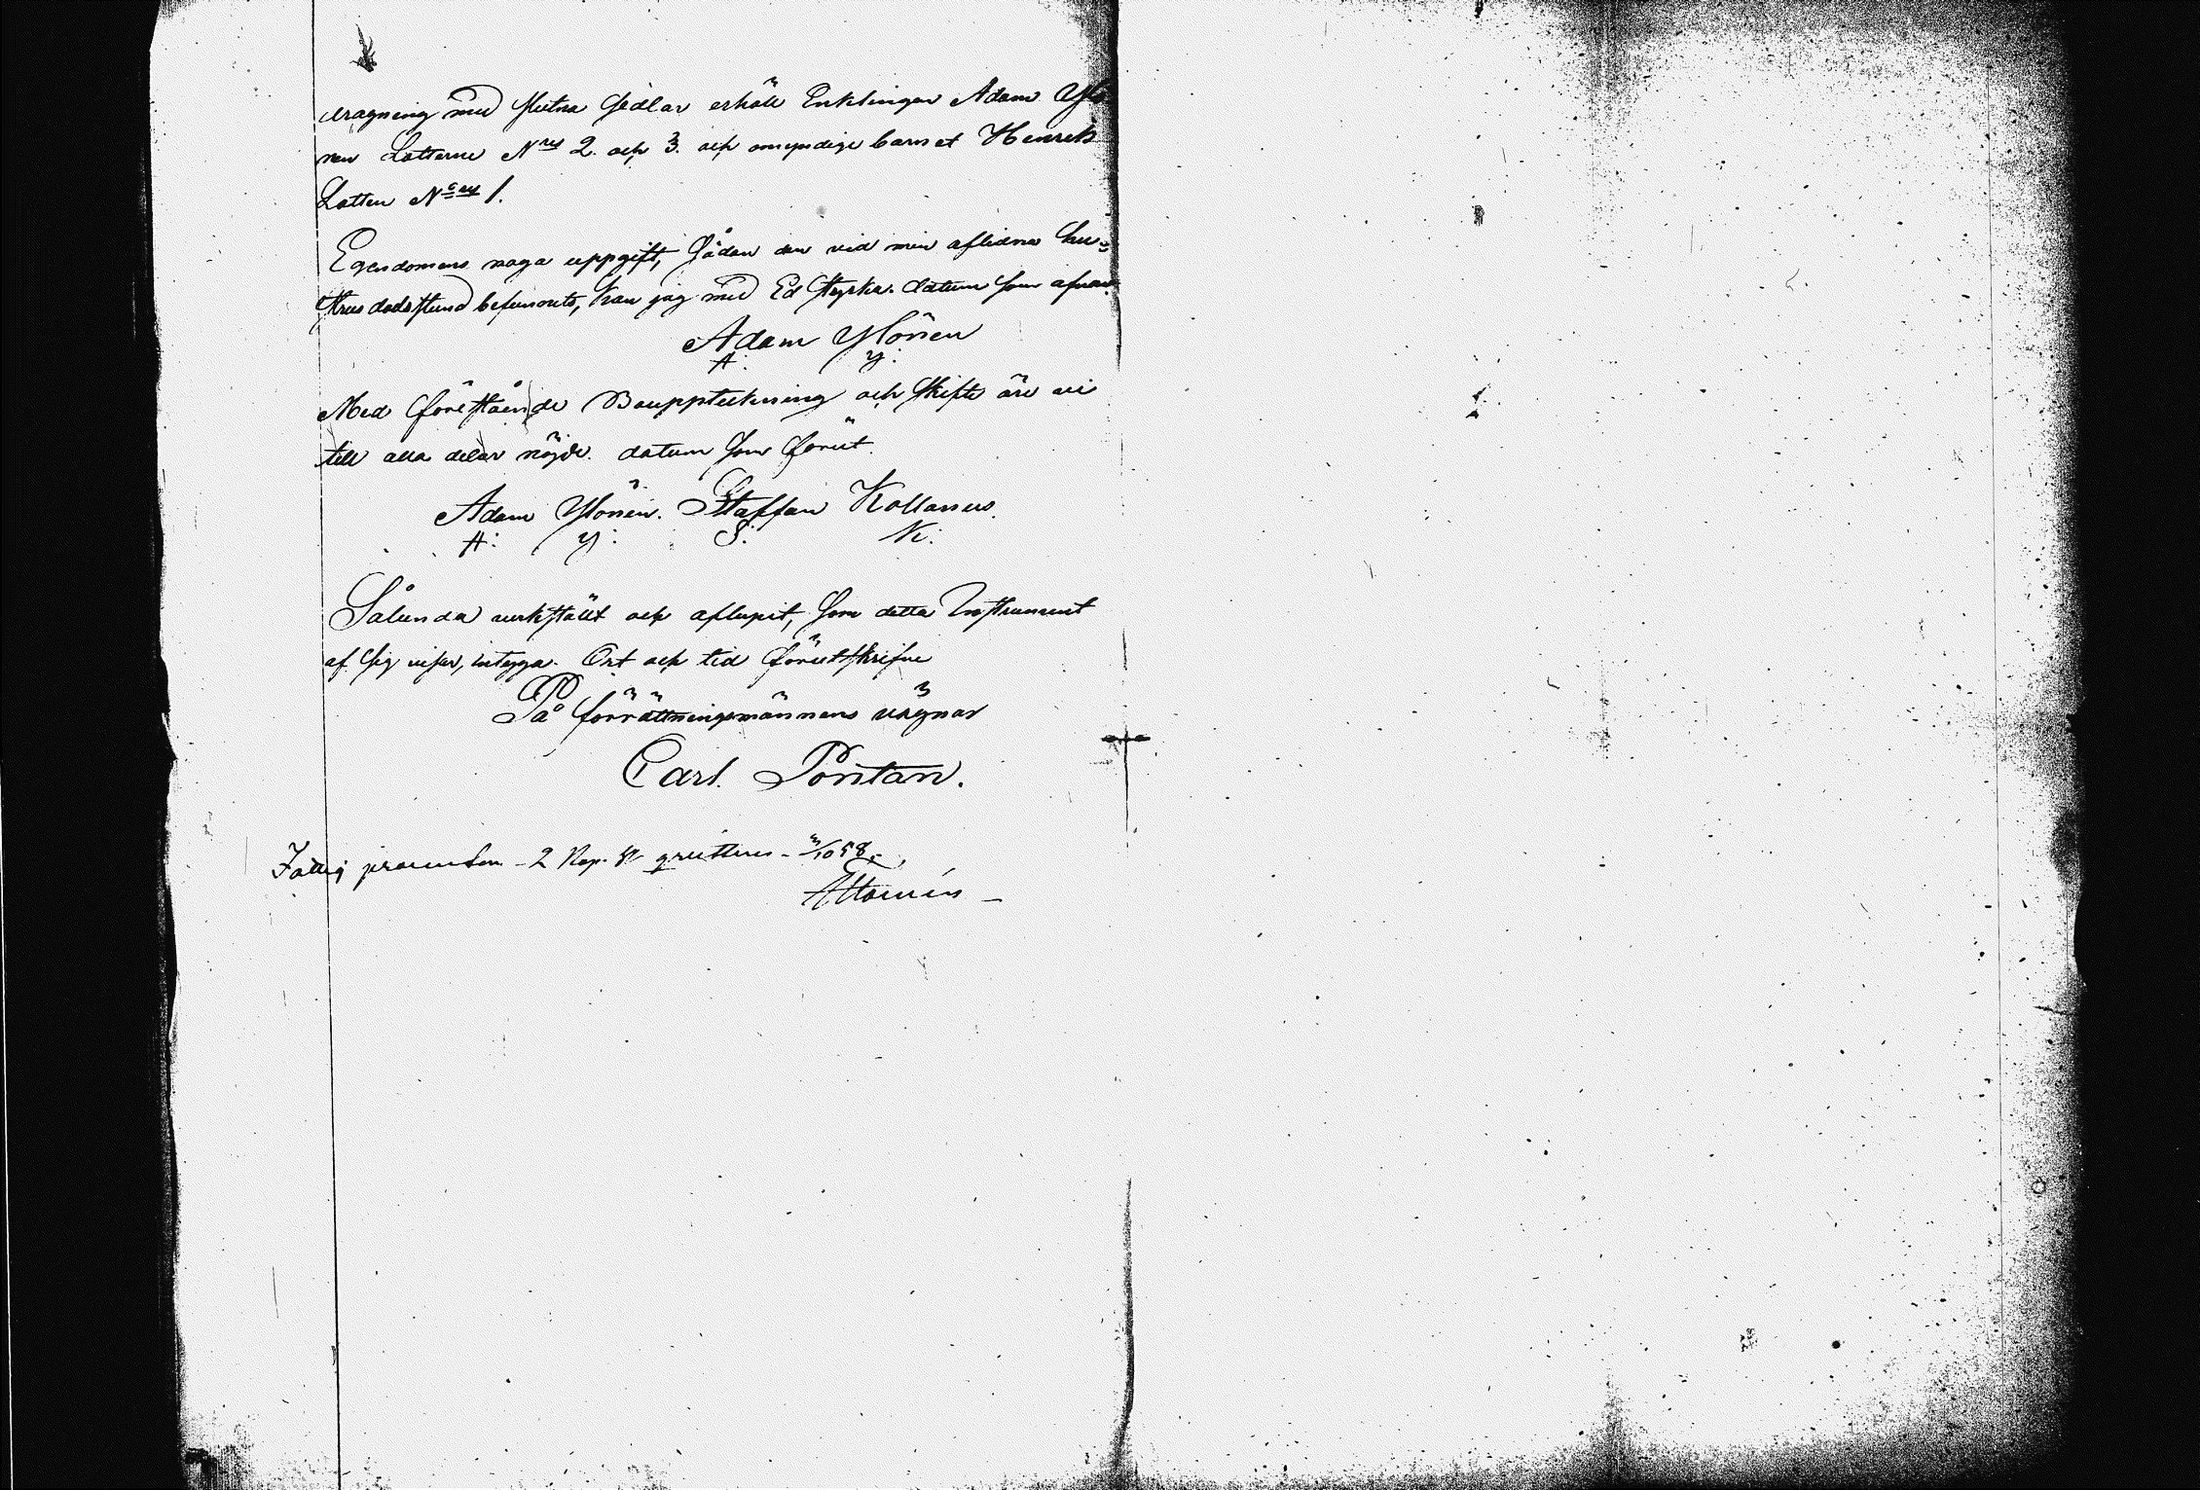 dragning med slutna sedlar erhöll Enklingen Adam Ylö
nen Lotterne N:res 2. och 3. och omyndige barnet Henrik
Lotten N:o 1.
Egendomens noga uppgift, sådan den vid min aflidna hu=
strus dödsstund befunnits, kan jag med Ed styrka. datum som ofvan.
Adam Ylönen
A: Y:
Med föreståen de Bouppteckning och skifte äro vi
till alla delar nöjde. datum som förut.
Adam Ylönen. Staffan Kollanus.
A: Y: S: K:
Sålunda verkstäldt och aflupit, som detta Instrument
af sig visar, intyga. Ort och tid förutskrifne
På förrättningsmännens vägnar
Carl Pontan.
Fattig procenten - 2 Kop. Sr qvitteras - 3/10 58,-